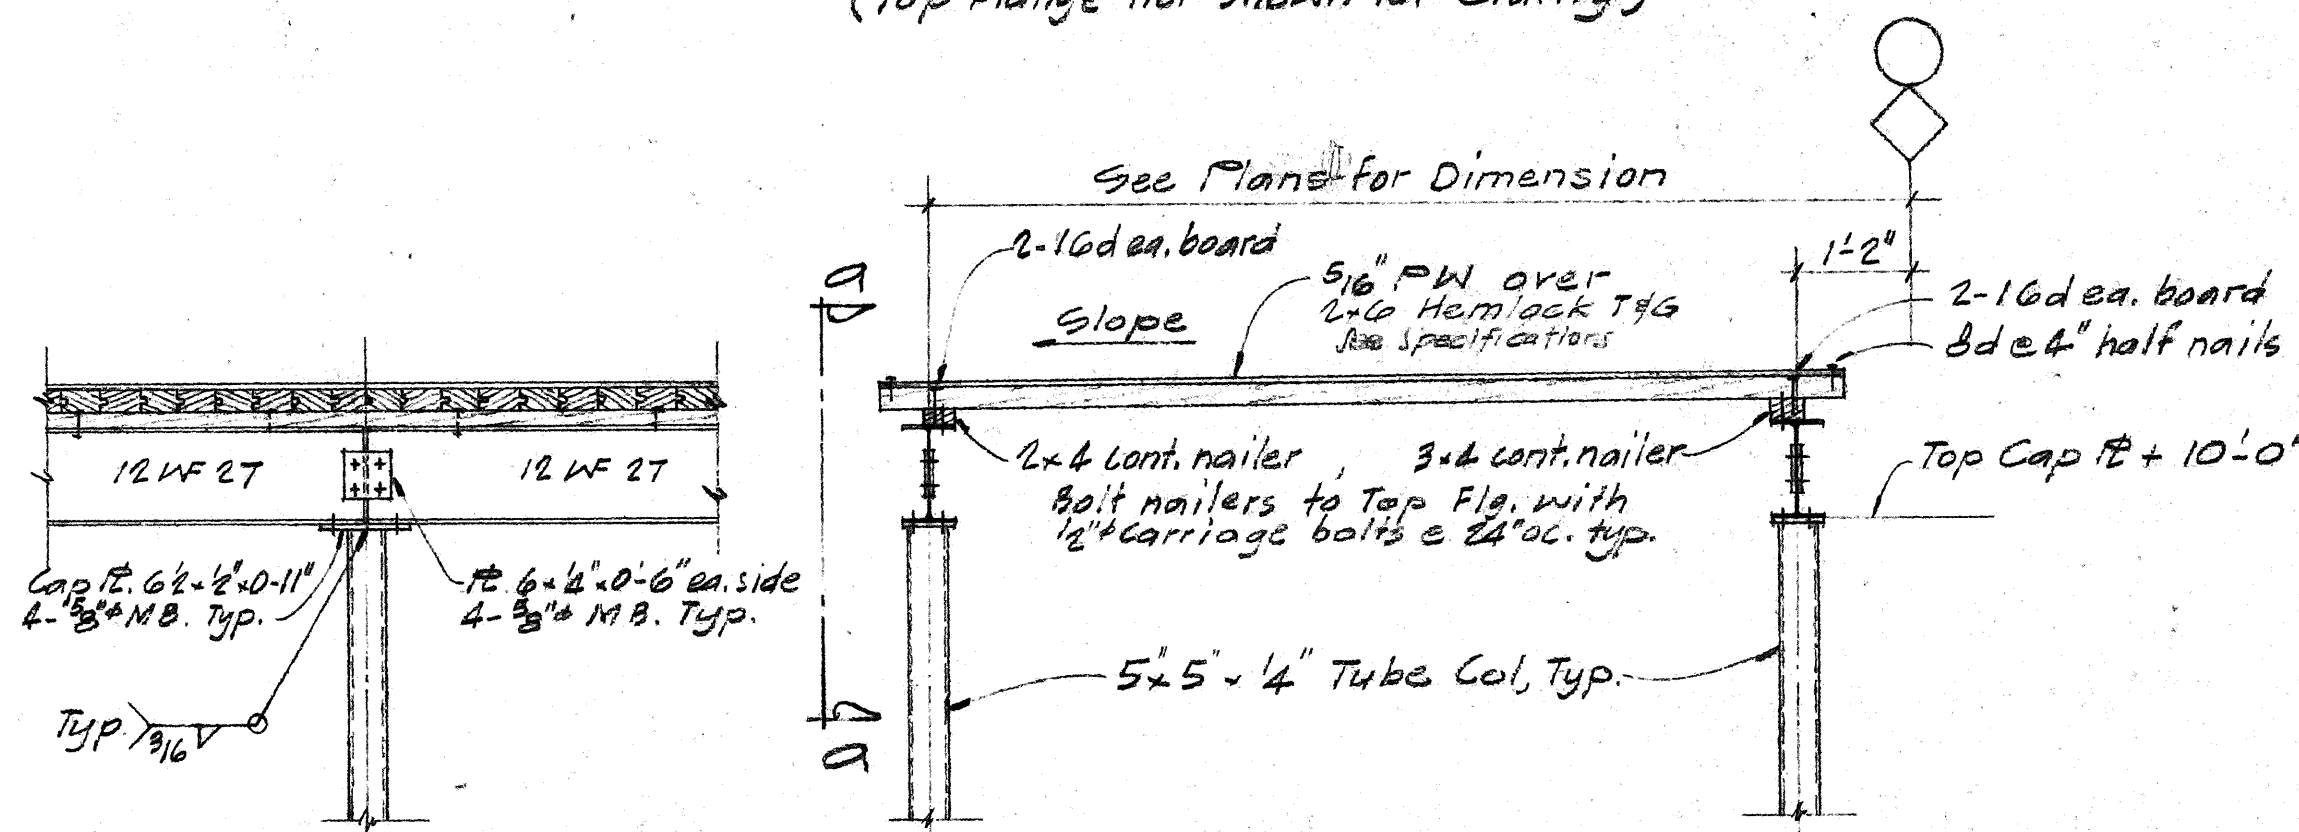 (Top Flange not shown for Clarity)
See Plans for Dimension
2-16d ea. board
1'-2"
5/16" PW over
2x6 Hemlock T&G
See Specifications
Slope
2-16d ea. board
8d @ 4" half nails
a
12 WF 27
12 WF 27
2x4 cont. nailer, 3x4 cont. nailer
Bolt nailers to Top Flg. with
1/2"φ Carriage bolts @ 24" oc. typ.
Top Cap PL + 10'-0"
Cap PL. 6 1/2 x 1/2" x 0-11"
4-5/8"φ M.B. Typ.
PL 6 x 1/4" x 0'-6" ea. side
4-5/8"φ M.B. Typ.
5" x 5" x 1/4" Tube Col, Typ.
Typ. 3/16
a